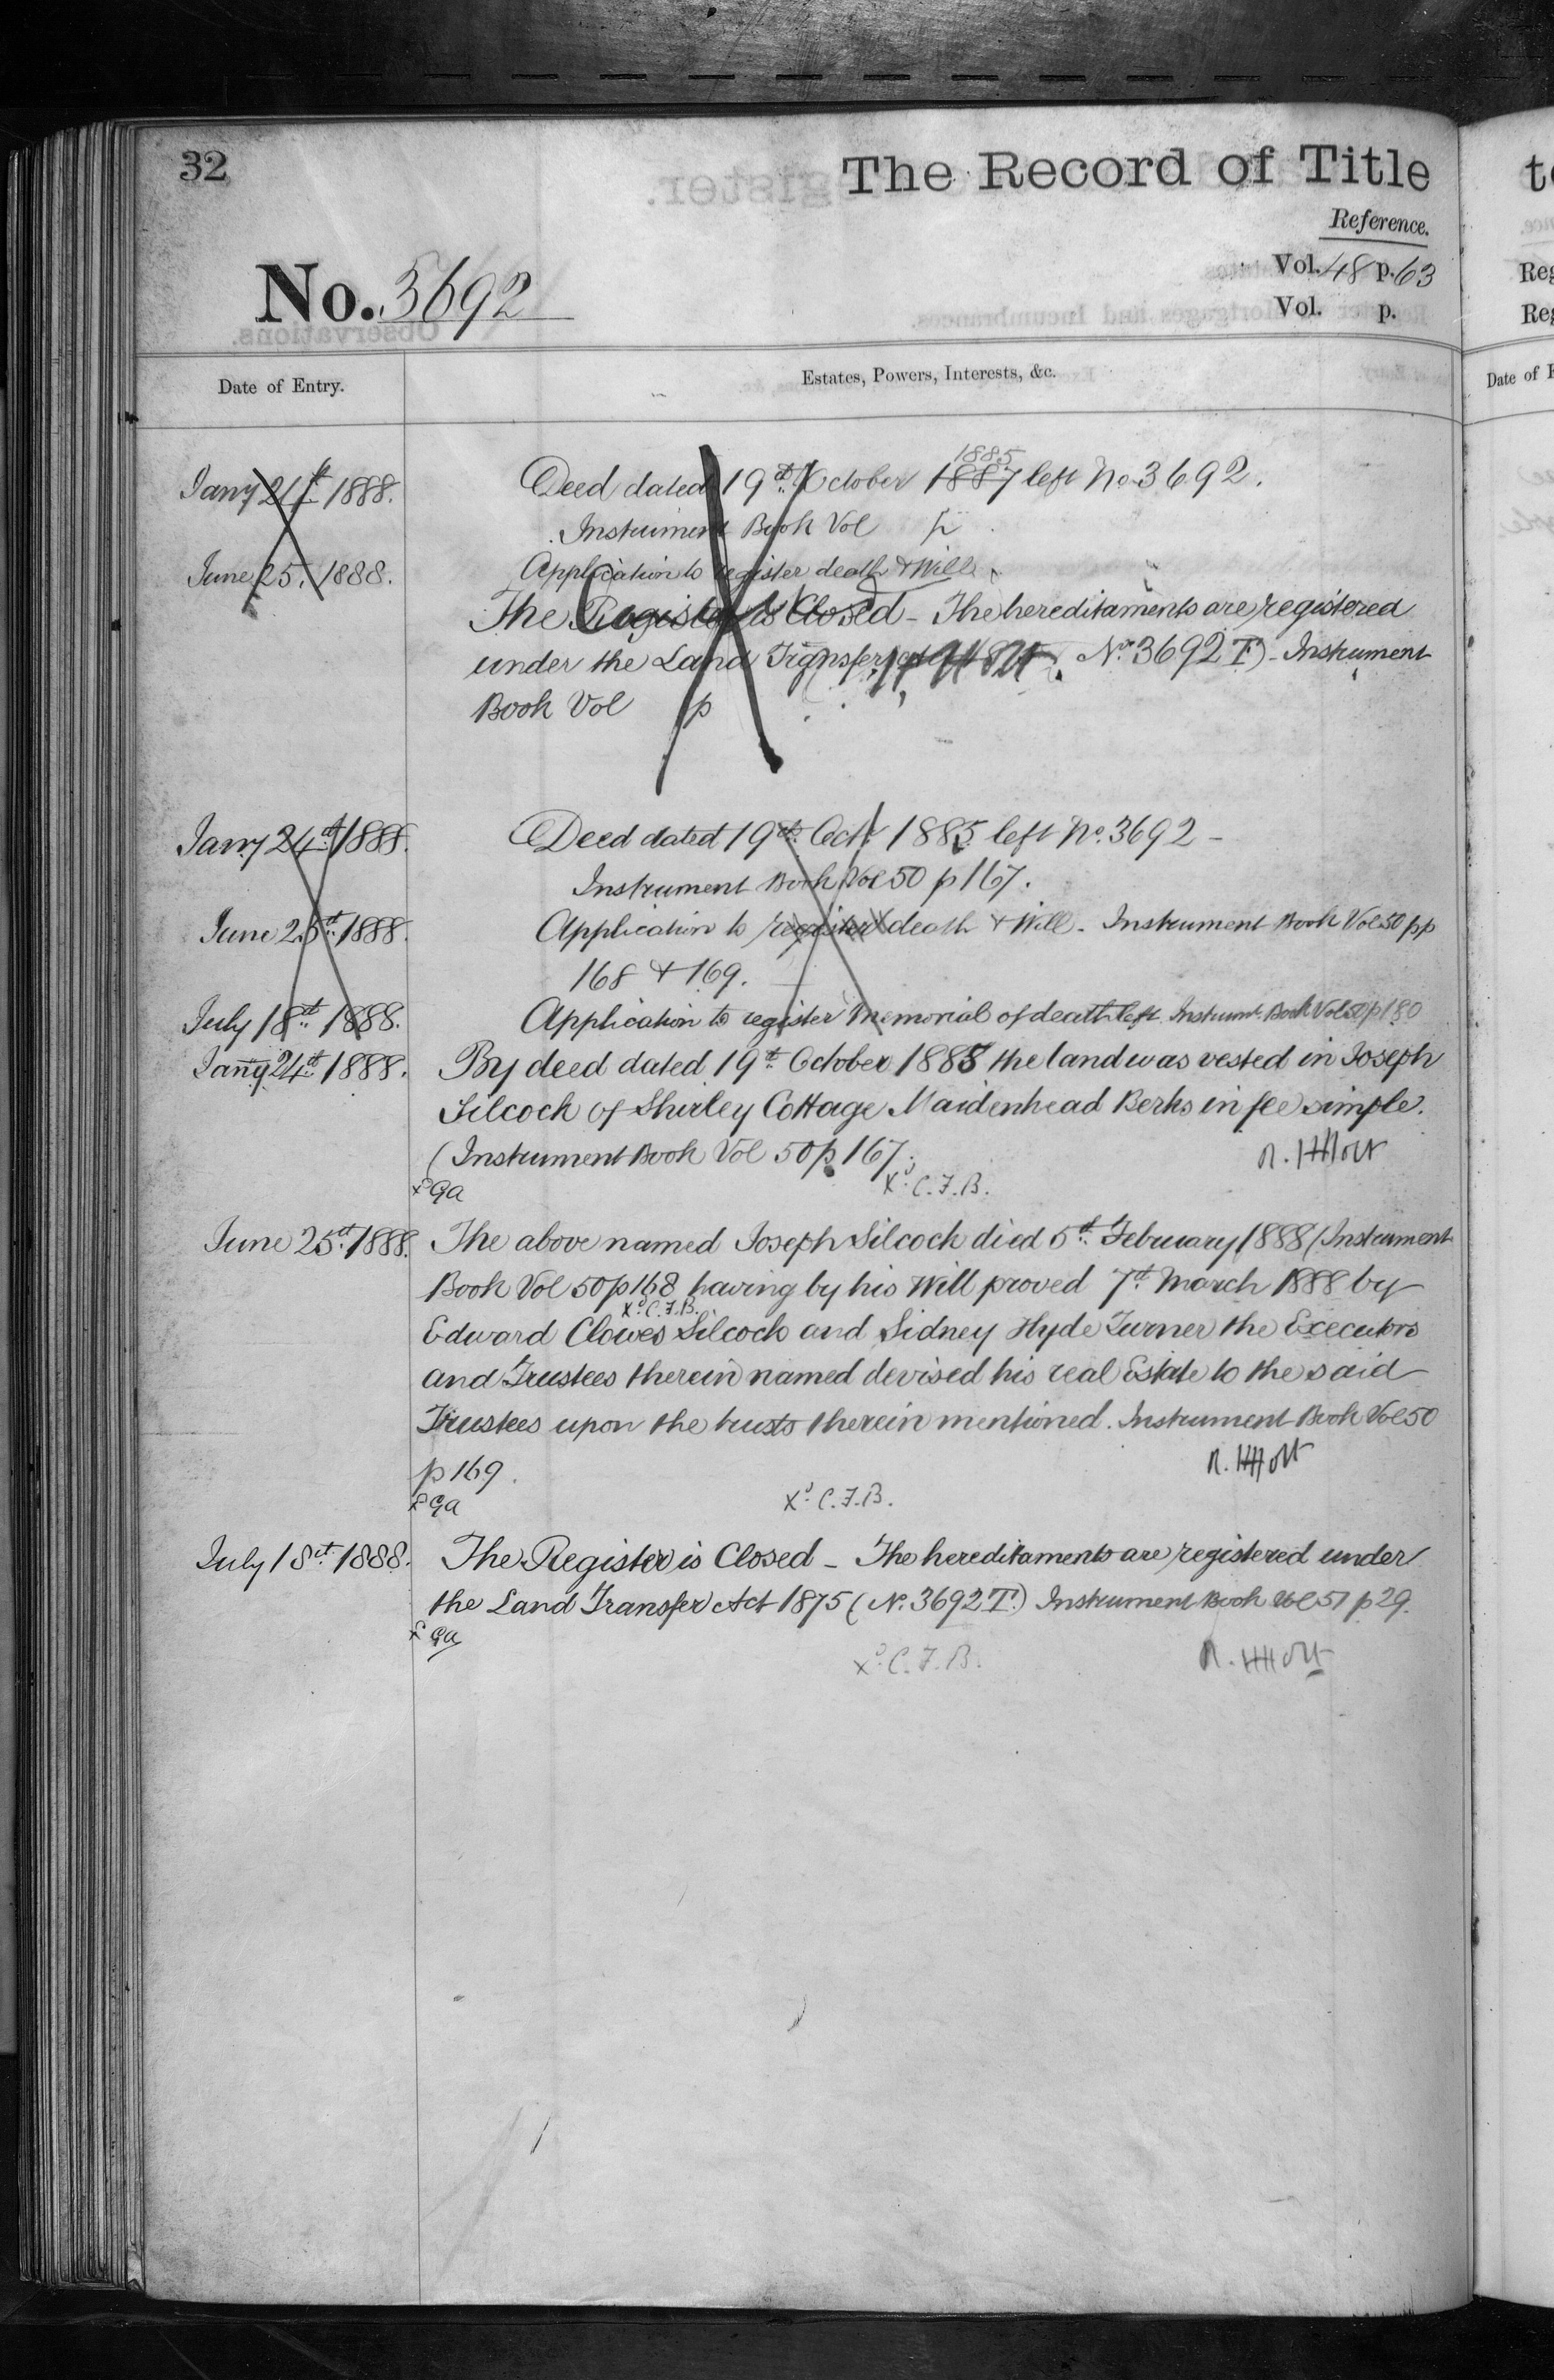 32
The Record of Title
Reference.
No. 3692
Vol. 48 p. 63
Vol. p.
Date of Entry.
Estates, Powers, Interests, &c.
1885
Jany 21st 1888. Deed dated 19th October 1887 left No 3692.
Instrument Book Vol p
June 25. 1888. Application to register death & Will
The Register is Closed - The hereditaments are registered
under the Land Transfer No. 3692 T) - Instrument
Book Vol p
Jany 24th 1888. Deed dated 19th Oct 1885 left No. 3692 -
Instrument Book Vol 50 p 167.
June 25th 1888. Application to register death & Will. Instrument Book Vol 50 pp
168 & 169.
July 18th 1888. Application to register Memorial of death left Instrumt. Book Vol 50 p 180
Jany 24th 1888. By deed dated 19th October 1885 the land was vested in Joseph
Silcock of Shirley Cottage Maidenhead Berks in fee simple.
(Instrument Book Vol 50 p 167.
R. H Holt
xd Ga
Xd. C.F.B.
June 25th 1888. The above named Joseph Silcock died 5th February 1888 (Instrument
Book Vol 50 p 168 having by his Will proved 7th March 1888 by
Xd. C.F.B.
Edward Clowes Silcock and Sidney Hyde Turner the Executors
and Trustees therein named devised his real Estate to the said
Trustees upon the trusts therein mentioned. Instrument Book Vol 50
p 169.
R. H Holt
xd Ga
Xd. C.F.B.
July 18th 1888. The Register is Closed - The hereditaments are registered under
the Land Transfer Act 1875 (No. 3692 T.) Instrument Book Vol 51 p 29.
xd Ga
Xd. C.F.B.
R. H Holt
Reg
Reg
Date of